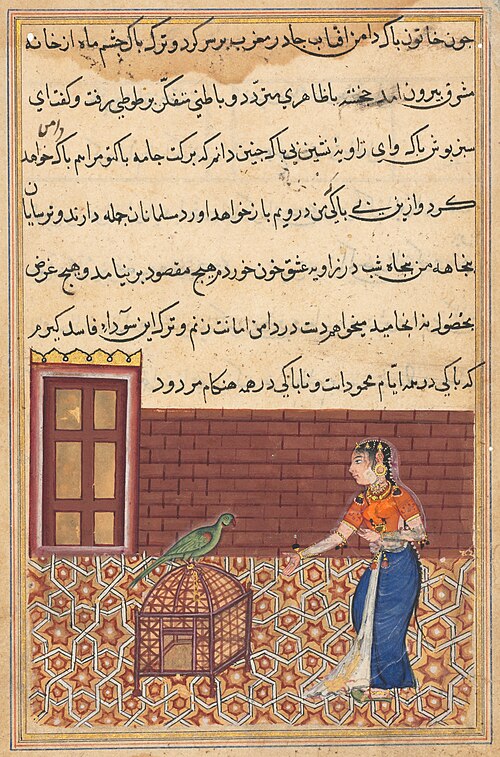 چون خاتون پاک دامن آفتاب چادر مغرب بر سر کرد و ترک پاک چشم ماه از خانه
مشرق بیرون آمد خجسته با ظاهری متردد و باطنی متفکر بر طوطی رفت و گفت ای
سبزپوش پاک وای زاویه نشین بی باک چنین دانم که برکت جامه پاک تو مرا هم پاک خواهد
دامن
کرد و ازین بی باکی من در رویم باز خواهد اورد مسلمانان جمله دارند و ترسایان
پنجاهه من پنجاه شب در زاویه عشق خون خوردم هیچ مقصود بر نیامد و هیچ غرض
بحصول نه انجامید میخواهم دست در دامن امانت زنم و ترک این سوداء فاسد گیرم
که پاکی در همه ایام محمود است و ناپاکی در همه هنکام مردود